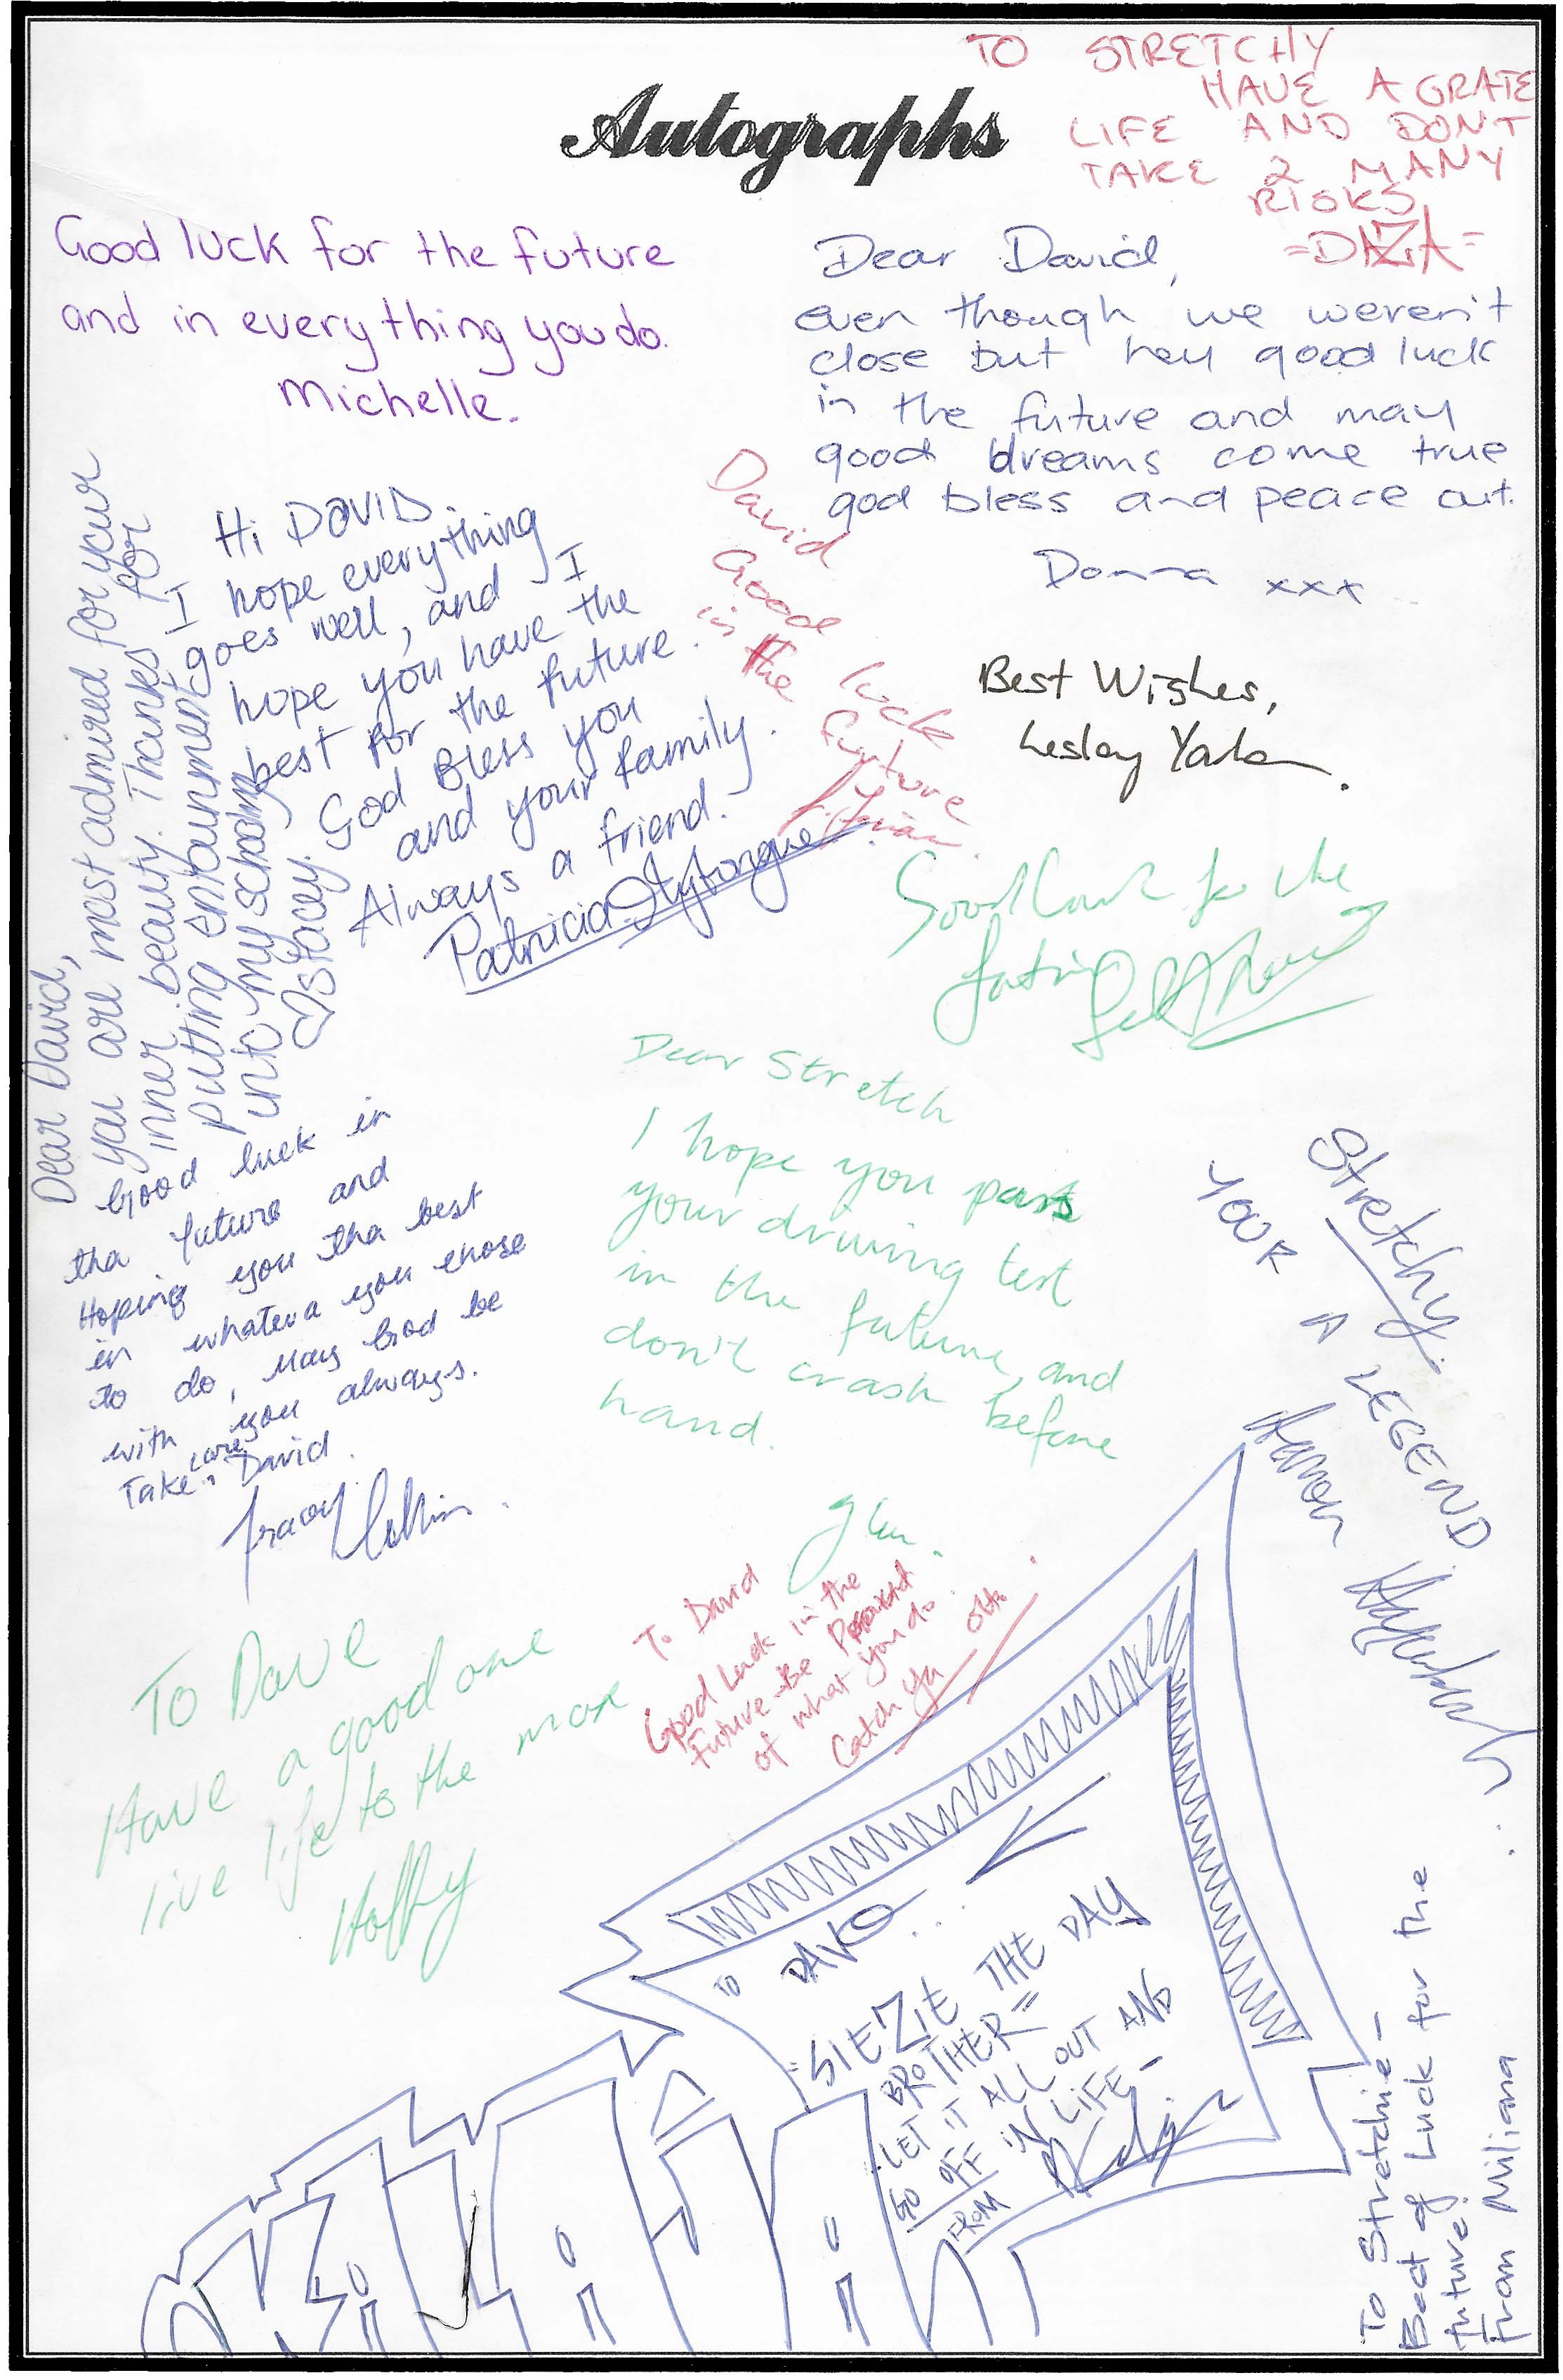 Autographs
TO STRETCHY
HAVE A GRATE
LIFE AND DONT
TAKE 2 MANY
RISKS
=DAZA=
Good luck for the future
and in everything you do.
Michelle.
Dear David,
even though we weren't
close but hey good luck
in the future and may
good dreams come true
god bless and peace out.
Donna xxx
Hi DaVID.
I hope everything
goes well, and I
hope you have the
best for the future.
God Bless you
and your family.
Always a friend.
Patricia
David
Good luck
in the future
Best Wishes,
Lesley
Dear David,
you are most admired for your
inner beauty. Thanks for
putting entertainment
into my schooling
Stacey.
Good Luck for the
Dear Stretch
I hope you pass
your driving test
in the future, and
don't crash before
hand.
Glen.
Good luck in
tha future and
Hoping you tha best
in whateva you chose
to do, may God be
with you always.
Take care David.
Tracey
Stretchy.
YOUR A LEGEND
To David
Good Luck in the
Future - Be
of what you do.
Catch ya
To Dave
Have a good one
live life to the max
Hoffy
TO DAVO...
"SIEZIE THE DAY
BROTHER"
LET IT ALL OUT AND
GO OFF IN LIFE-
FROM
To Stretchie-
Best of Luck for the
future!
from Miliana